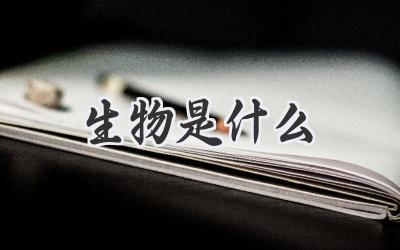 生物是什么